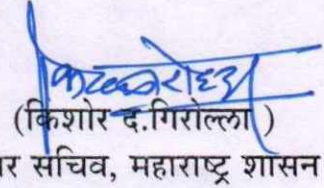 (किशोर द.गिरोल्ला )
र सचिव, महाराष्ट्र शासन